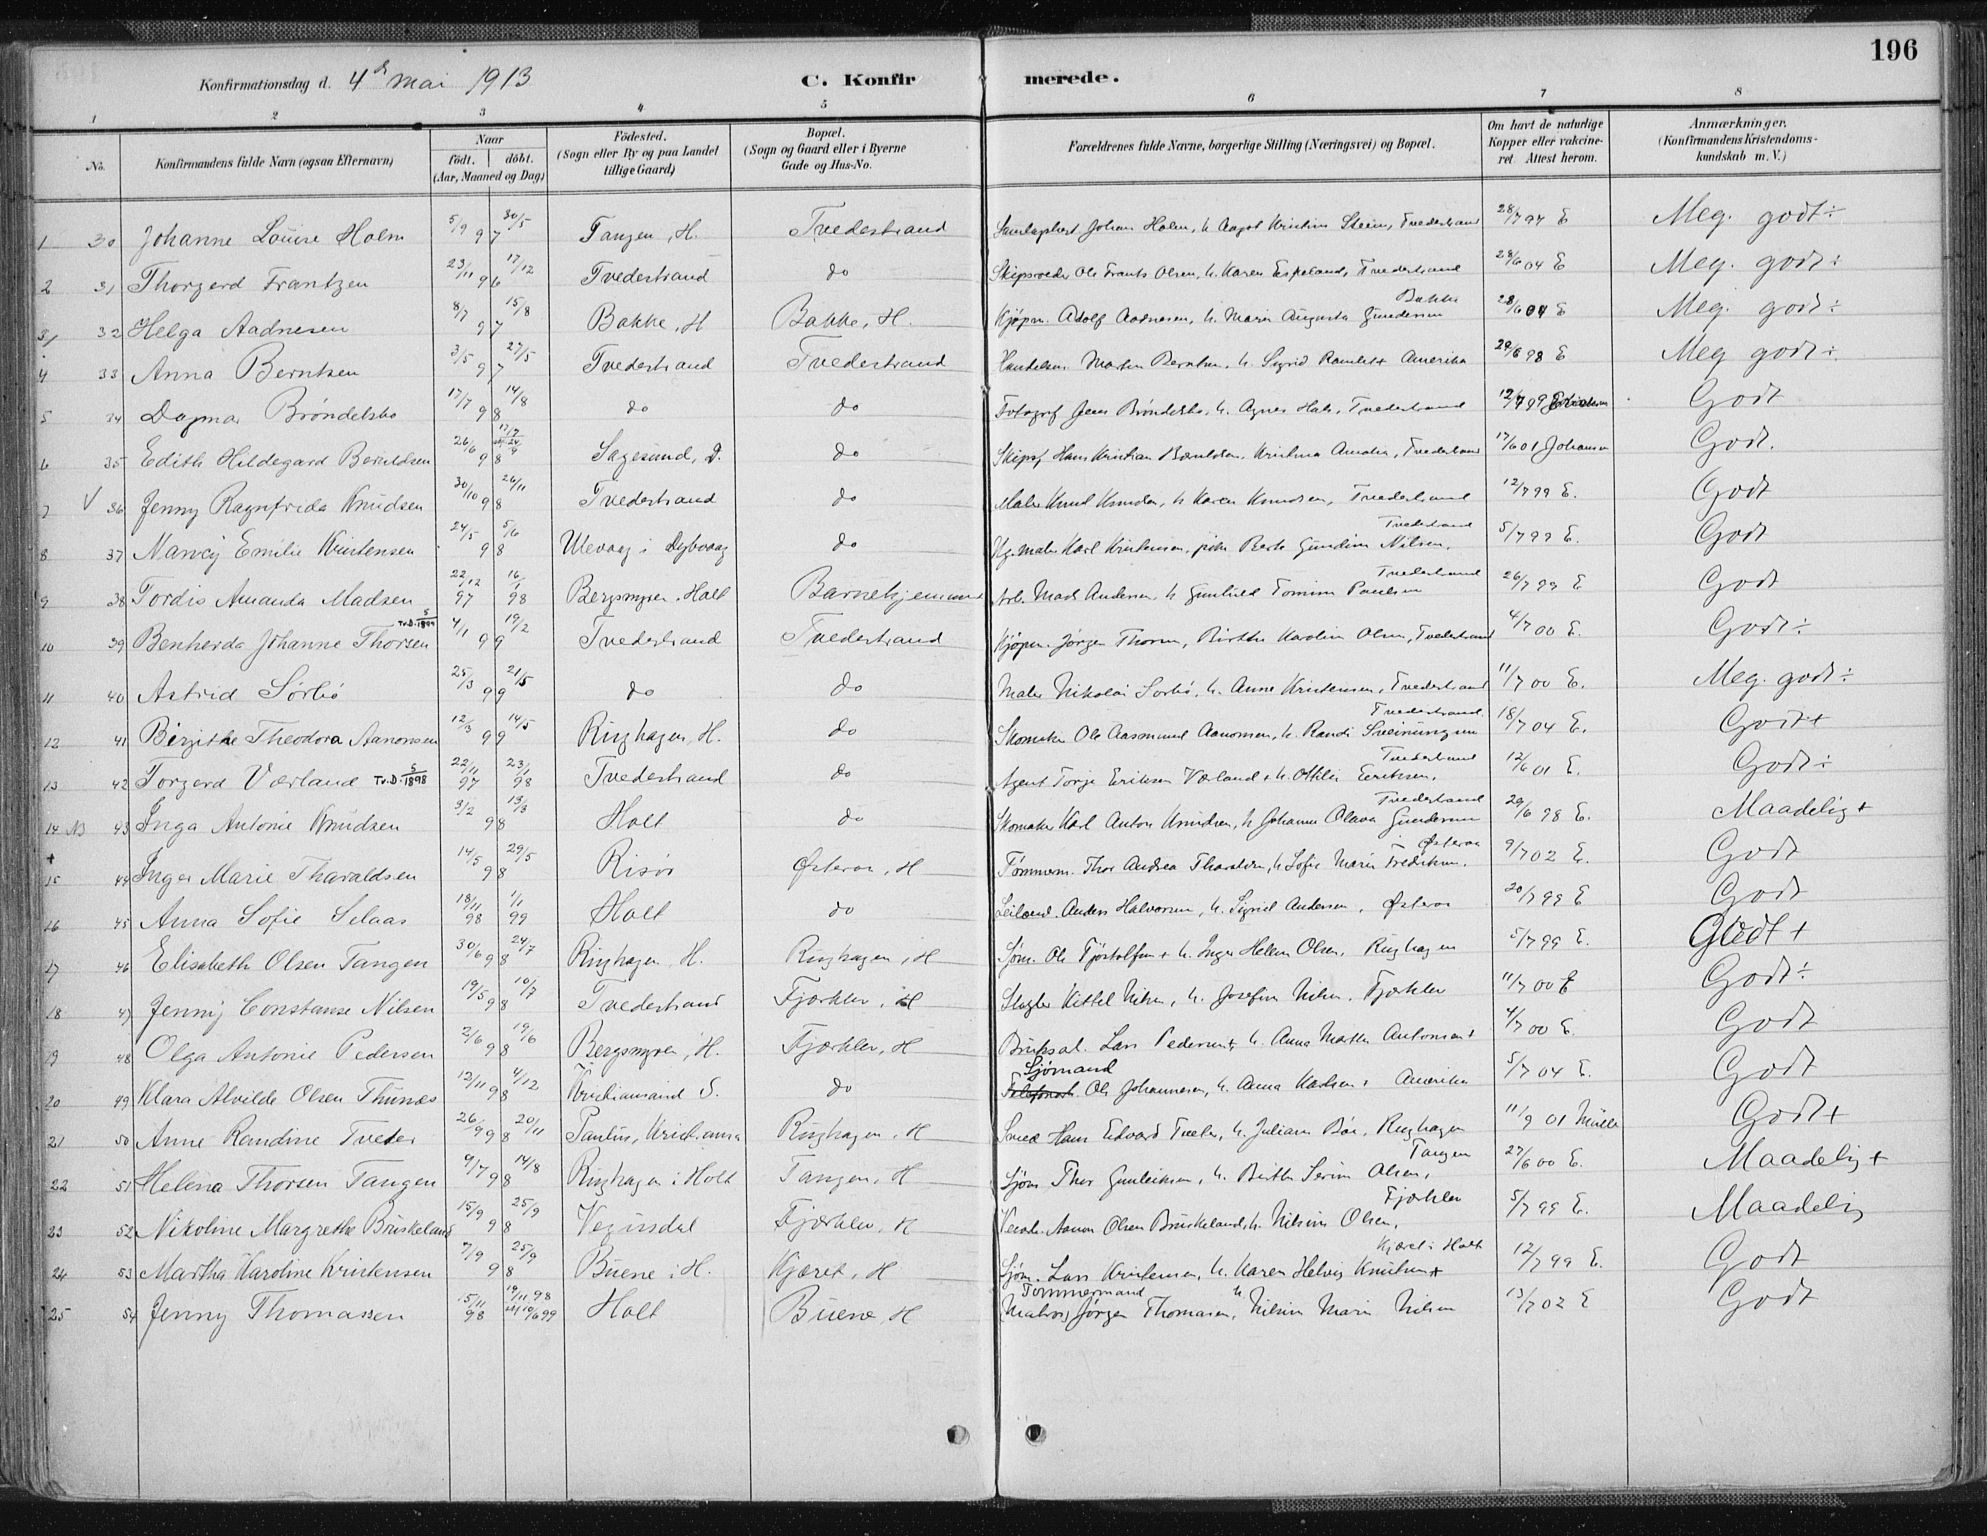 196
Konfirmationsdag d. 4de mai 1913 C. Konfirmerede.
1 2 3 4 5 6 7 8
No. Konfirmandens fulde Navn (ogsaa Efternavn) Naar født. døbt. (Aar, Maaned og Dag) Fødested. (Sogn eller By og paa Landet tillige Gaard) Bopæl. (Sogn og Gaard eller i Byerne Gade og Hus-No. Forældrenes fulde Navne, borgerlige Stilling (Næringsvei) og Bopæl. Om havt de naturlige Kopper eller vakcineret. Attest herom. Anmærkninger. (Konfirmandens Kristendomskundskab m. V.)
1 30 Johanne Louise Holm 5/9 97 30/5 Tangen, H. Tvedestrand Johan Holm, h. Aagot Kristine Steen, Tvedestrand 28/7 97 E Meg. godt ÷
2 31 Thorgerd Frantzen 23/11 96 17/12 Tvedestrand do Skipsreder Ole Frants Olsen, h. Karen Espeland, Tvedestrand 28/6 04 E Meg. godt ÷
3 32 Helga Aadnesen 8/7 97 15/8 Bakke, H Bakke, H. Kjøpm. Adolf Aadnesen, h. Marie Augusta Gundersen Bakke 28/6 04 E Meg. godt ÷
4 33 Anna Berntsen 3/5 97 27/5 Tvedestrand Tvedestrand Handelsm. Martin Berntsen, h. Sigrid Amerika 29/6 98 E Meg godt ÷
5 34 Dagmar Brøndelsbo 17/7 98 14/8 do do Fotograf Jens Brøndelsbo, h. Agnes Hals, Tvedestrand 12/7 99 Godt
6 35 Edith Hildegard Beruldsen 26/6 98 17/7 Sagesund, D. do Skipsf. Hans Kristian Beruldsen, Kristina Amalie, Tvedestrand 17/6 01 Johansen Godt.
7 V 36 Jenny Ragnfrida Knudsen 30/10 98 26/11 Tvedestrand do Maler Knud Knudsen, h. Karen Knudsen, Tvedestrand 12/7 99 E. Godt
8 37 Nancy Emilie Kristensen 24/5 98 5/6 Ulevaag i Dybvaag do Ug. maler Karl Kristensen, pike Berte Gundine Nilsen, Tvedestrand 5/7 99 E. Godt
9 38 Tordis Amanda Madsen 22/12 97 16/1 98 Bergsmyren, Holt Barnehjemmet Arb. Mads Andersen, h. Gunhild Tomine Paulsen Tvedestrand 26/7 99 E Godt
10 39 Benherda Johanne Thorsen Tv.D. 5/1899 4/1 99 19/2 Tvedestrand Tvedestrand Kjøpm. Jørgen Thorsen, Birthe Karoline Olsen, Tvedestrand 4/7 00 E. Godt ÷
11 40 Astrid Sørbø 25/3 99 21/5 do do Maler Nikolai Sørbø, h. Anne Kristensen, Tvedestrand 11/7 00 E. Meg. godt ÷
12 41 Birgithe Theodora Aanonsen 12/3 99 14/5 Ringhagen, H. do Skomaker Ole Aasmund Aanonsen, h. Randi Sveinungsen Tvedestrand 18/7 04 E. Godt +
13 42 Torgerd Værland Tv.D. 5/1898 22/11 97 23/1 98 Tvedestrand do Agent Torje Eriksen Værland & h. Ottilie Eeriksen, Tvedestrand 12/6 01 E. Godt ÷
14 NB 43 Inga Antonie Knudsen 3/2 98 13/3 Holt do Skomaker Karl Anton Knudsen, h. Johanne Olava Gundersen Tvedestrand 29/6 98 E. Maadelig +
+ 15 44 Inger Marie Tharaldsen 14/5 98 29/5 Risør Østeraa, H Tømmerm. Thor Andreas Tharaldsen, h. Sofie Marie Fredriksen. Østeraa 9/7 02 E. Godt
16 45 Anna Sofie Selaas 18/11 98 1/1 99 Holt do Leilænd. Anders Halvorsen, h. Sigrid Andersen, Østeraa 20/7 99 E Godt
17 46 Elisabeth Olsen Tangen 30/6 98 24/7 Ringhagen, H. Ringhagen, H Sjøm. Ole Tjøstolfsen + h. Inger Helene Olsen, Ringhagen 5/7 99 E. Godt +
18 47 Jenny Constanse Nilsen 19/5 98 10/7 Tvedestrand Fjærkler, H Slagter Kittel Nilsen, h. Josefine Nilsen, Fjærkler 11/7 00 E Godt ÷
19 48 Olga Antonie Pedersen 2/6 98 19/6 Bergsmyren, H. Fjærkler, H Bruksal. Lars Pedersen +, h. Anna Marthe Antonsen + 4/7 00 E. Godt
20 49 Klara Alvilde Olsen Thunæs 12/11 98 4/12 Kristiansand S. do Sjømand Ole Johannesen, h. Anna Karlsen : Amerika 5/7 04 E. Godt
21 50 Anne Randine Tveter 26/9 98 20/11 Paulus, Kristiania Ringhagen, H Smed Hans Edvard Tveter, h. Juliane Bøe, Ringhagen 11/9 01 Müller Godt +
22 51 Helena Thorsen Tangen 9/7 98 14/8 Ringhagen i Holt Tangen, H Sjøm. Thor Gunleiksen, h. Berthe Serine Olsen, Tangen 27/6 00 E. Maadelig +
23 52 Nikoline Margrethe Bruskeland 15/9 98 25/9 Vegusdal Fjærkler, H Aanon Olsen Bruskeland, h. Nilsine Olsen, Fjærkler 5/7 99 E. Maadelig
24 53 Martha Karoline Kristensen 7/9 98 25/9 Buene i H. Kjæret, H Sjøm. Lars Kristensen, h. Karen Helvig Knutsen + Kjæret i Holt 12/7 99 E. Godt
25 54 Jenny Thomassen 15/11 98 19/11 98 Holt Buene, H Tømmermand (Matros) Jørgen Thomassen, h. Nilsine Marie Nilsen 13/7 02 E Godt